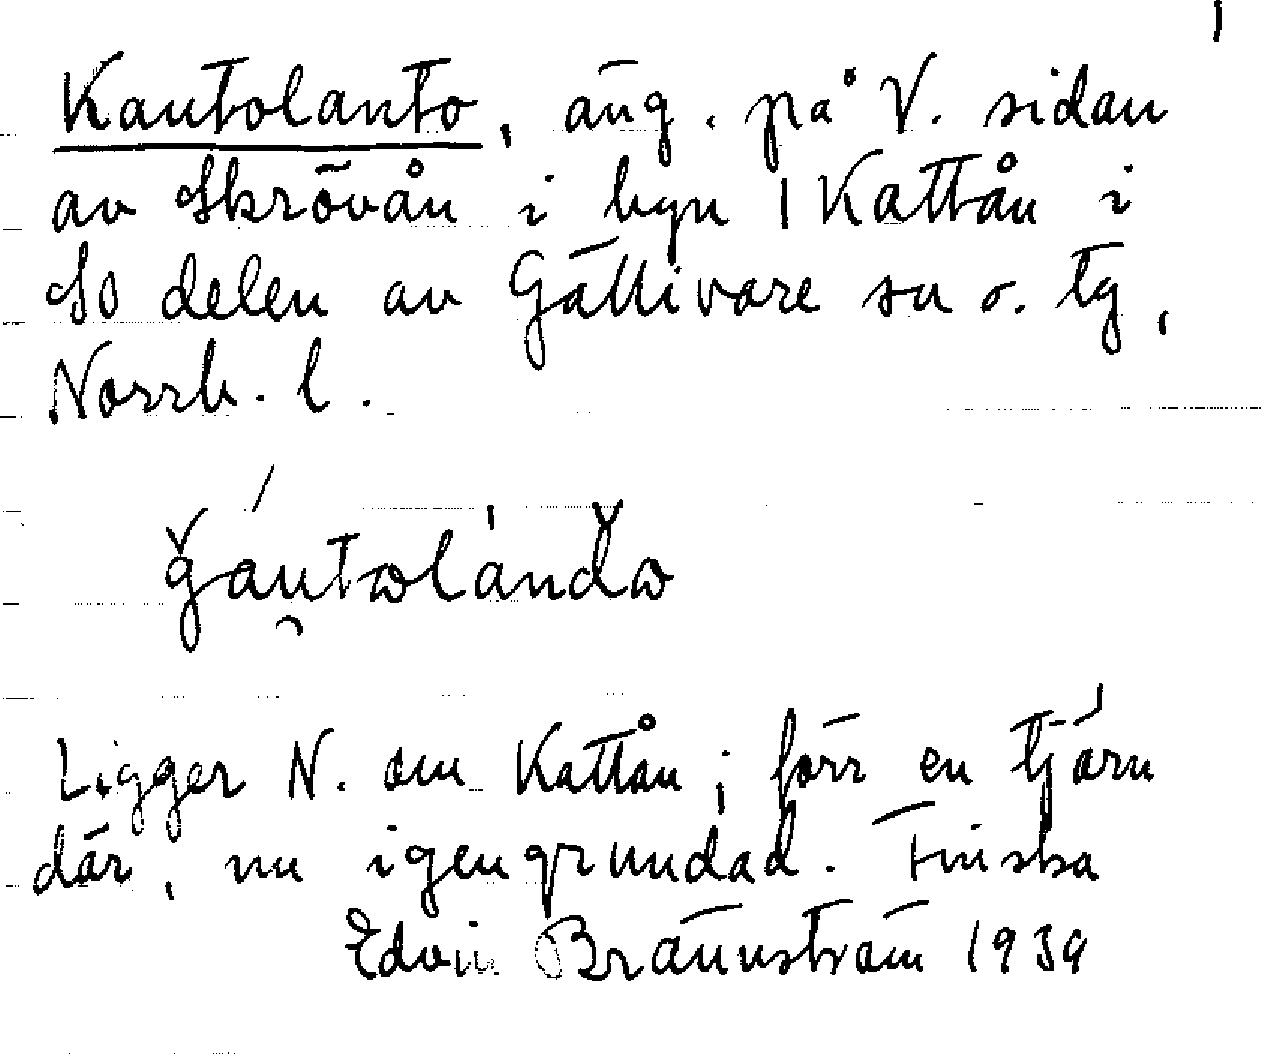 1
Kautolanto, äng. på V. sidan
av Skrövån i byn Kattån i
SO delen av Gällivare sn o. tg,
Norrb. l.
ǧáu̯tωlánd̆ω
Ligger N. om Kattån; förr en tjärn
där, nu igengrundad. Finska
Edvin Brännström 1939